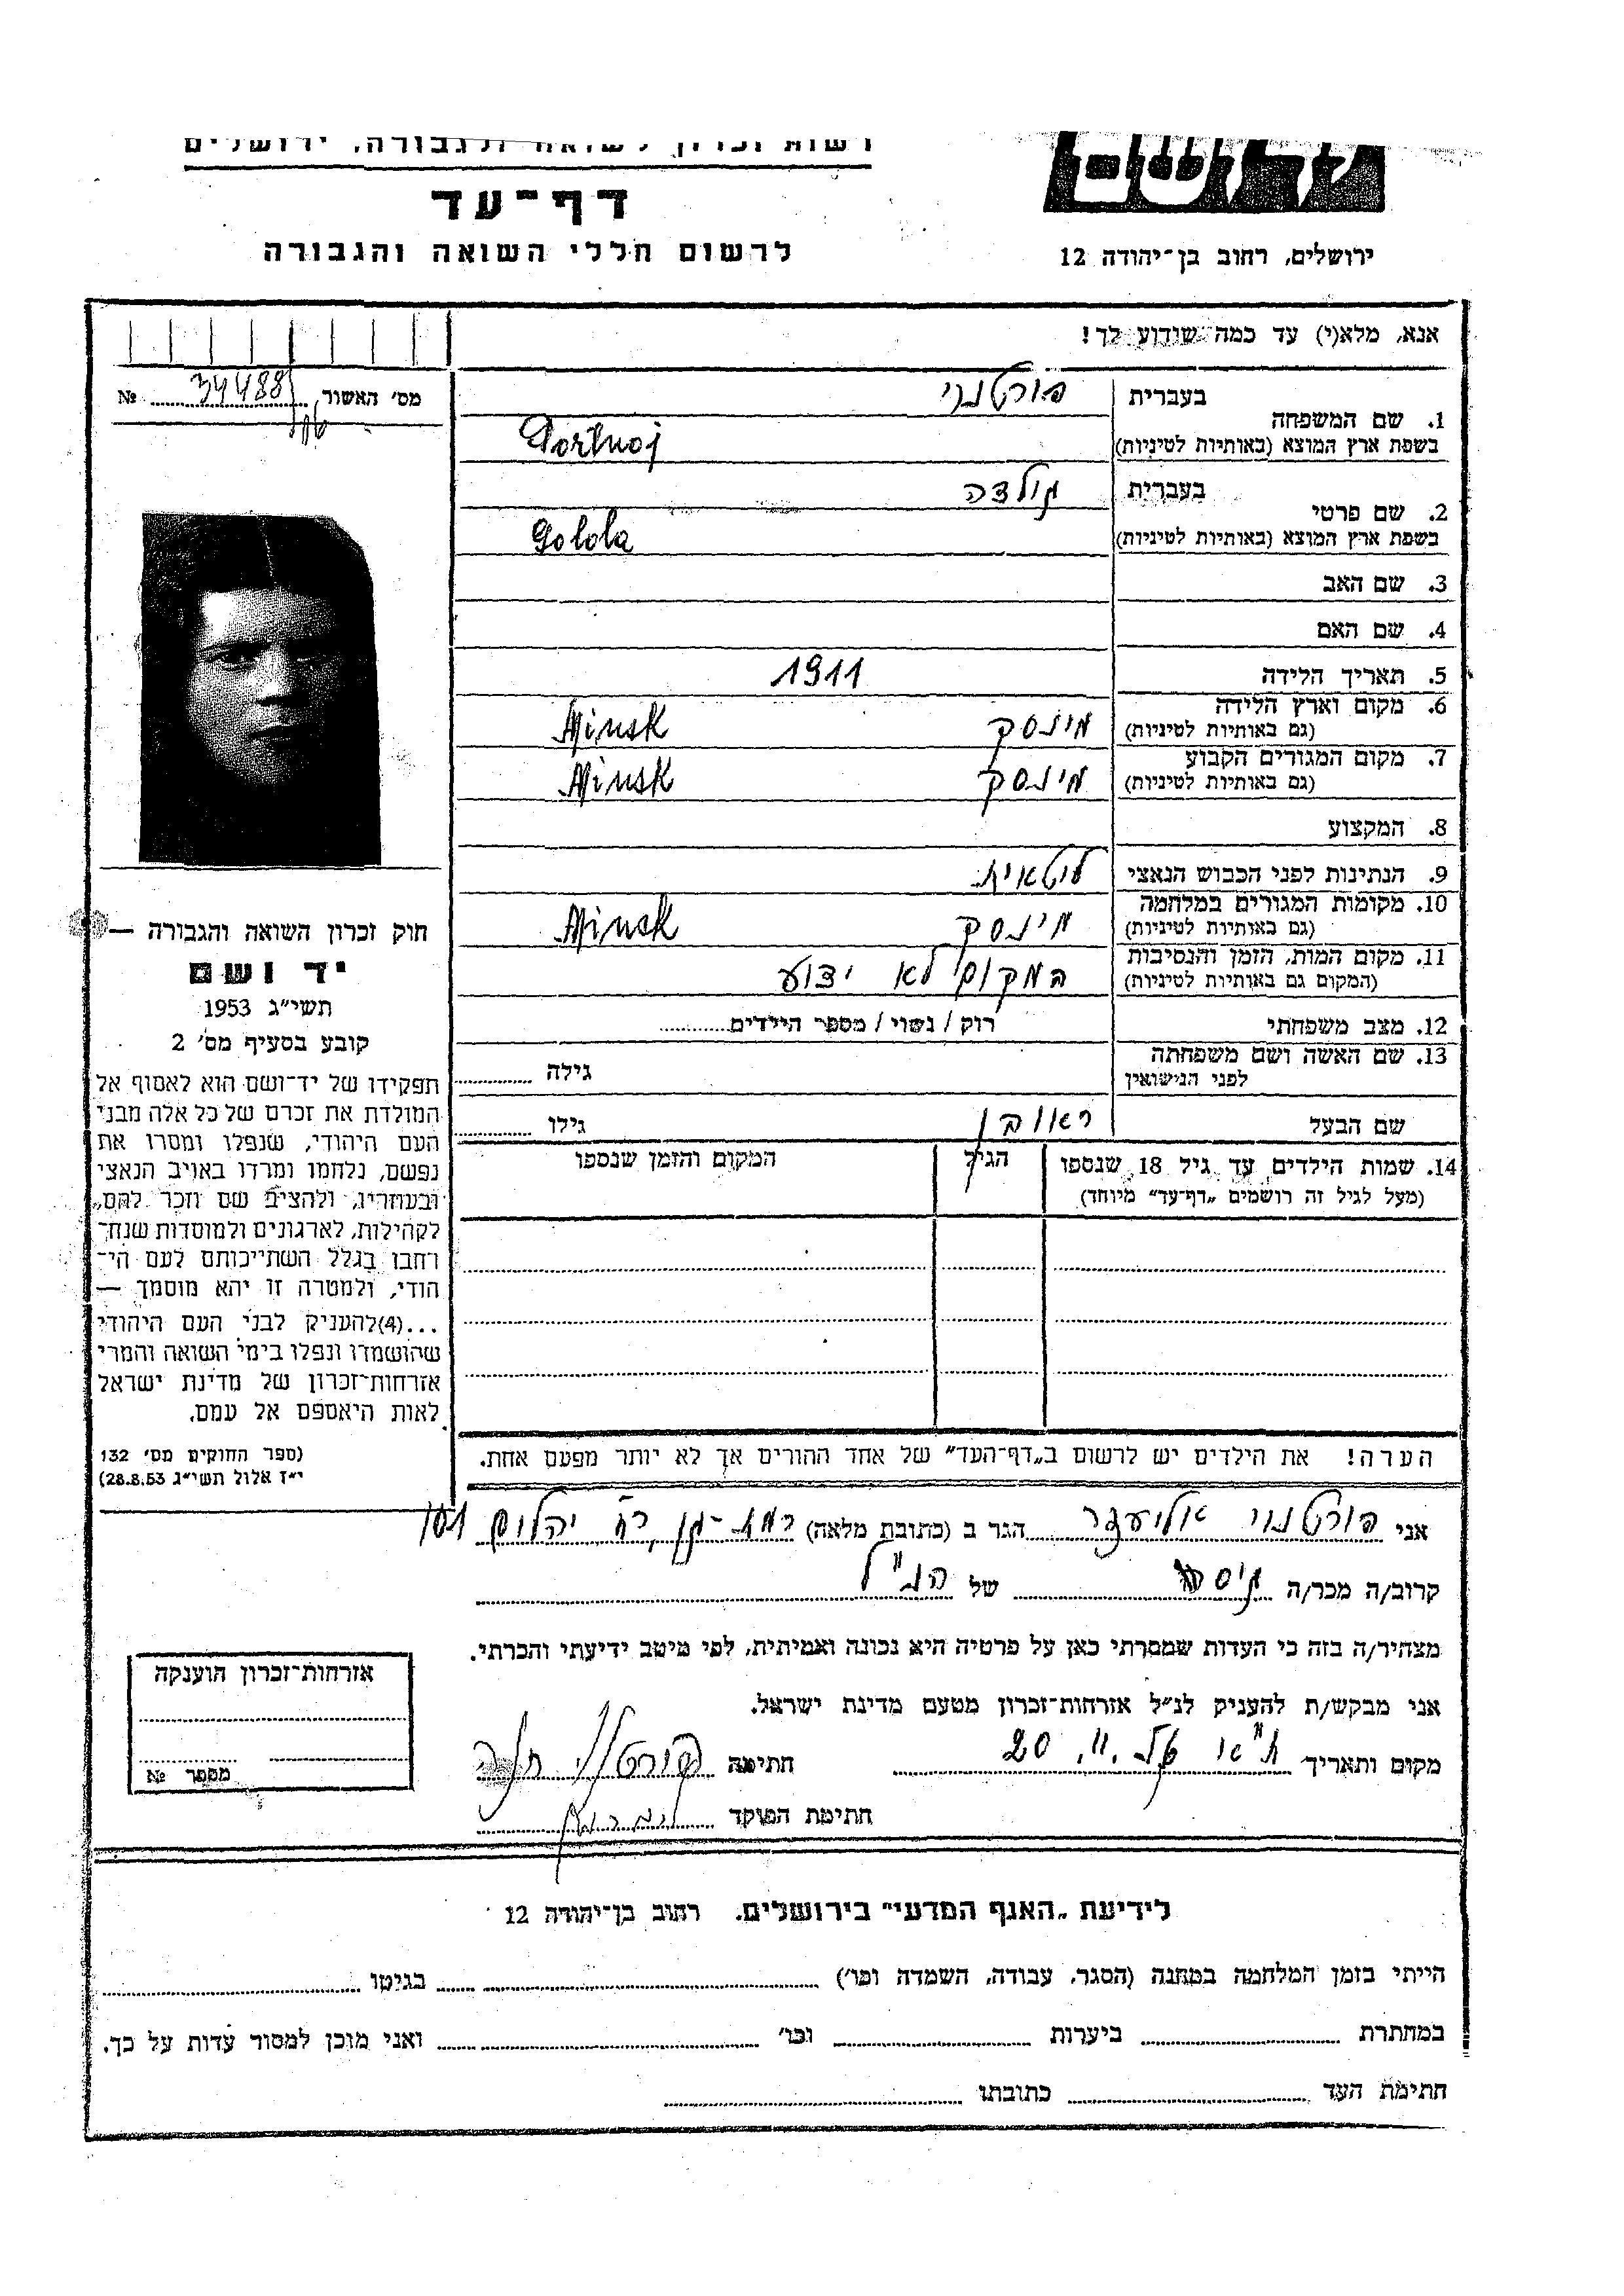 רשות זכרון לשואה ולגבורה, ירושלים
דף-עד
לרשום חללי השואה והגבורה
ירושלים, רחוב בן-יהודה 12
אנא, מלא(י) עד כמה שידוע לך!
מס' האשור 34488 №
1. שם המשפחה
בעברית פורטנוי
בשפת ארץ המוצא (באותיות לטיניות) Portnoj
2. שם פרטי
בעברית גולדה
בשפת ארץ המוצא (באותיות לטיניות) Golda
3. שם האב
4. שם האם
5. תאריך הלידה 1911
6. מקום וארץ הלידה
(גם באותיות לטיניות) מינסק Minsk
7. מקום המגורים הקבוע
(גם באותיות לטיניות) מינסק Minsk
8. המקצוע
9. הנתינות לפני הכבוש הנאצי ליטאית
10. מקומות המגורים במלחמה
(גם באותיות לטיניות) מינסק Minsk
11. מקום המות, הזמן והנסיבות
(המקום גם באותיות לטיניות) המקום לא ידוע
12. מצב משפחתי רוק / נשוי / מספר הילדים
13. שם האשה ושם משפחתה
לפני הנישואין גילה
שם הבעל ראובן גילו
14. שמות הילדים עד גיל 18 שנספו הגיל המקום והזמן שנספו
(מעל לגיל זה רושמים „דף-עד" מיוחד)
הערה! את הילדים יש לרשום ב„דף-העד" של אחד ההורים אך לא יותר מפעם אחת.
חוק זכרון השואה והגבורה —
יד ושם
תשי"ג 1953
קובע בסעיף מס' 2
תפקידו של יד-ושם הוא לאסוף אל
המולדת את זכרם של כל אלה מבני
העם היהודי, שנפלו ומסרו את
נפשם, נלחמו ומרדו באויב הנאצי
ובעוזריו, ולהציב שם וזכר להם,
לקהילות, לארגונים ולמוסדות שנח-
רבו בגלל השתייכותם לעם הי-
הודי, ולמטרה זו יהא מוסמך —
...(4) להעניק לבני העם היהודי
שהושמדו ונפלו בימי השואה והמרי
אזרחות-זכרון של מדינת ישראל
לאות היאספם אל עמם.
(ספר החוקים מס' 132
י"ז אלול תשי"ג 28.8.53)
אני פורטנוי אליעזר הגר ב (כתובת מלאה) רמת-גן רח' יהלום 101
קרוב/ה מכר/ה גיס של הנ"ל
מצהיר/ה בזה כי העדות שמסרתי כאן על פרטיה היא נכונה ואמיתית, לפי מיטב ידיעתי והכרתי.
אני מבקש/ת להעניק לנ"ל אזרחות-זכרון מטעם מדינת ישראל.
מקום ותאריך ת"א חתימה
חתימת הפוקד
אזרחות-זכרון הוענקה
מספר №
לידיעת „האגף המדעי" בירושלים. רחוב בן-יהודה 12
הייתי בזמן המלחמה במחנה (הסגר, עבודה, השמדה וכו') בגיטו
במחתרת ביערות וכו' ואני מוכן למסור עדות על כך.
חתימת העד כתובתו